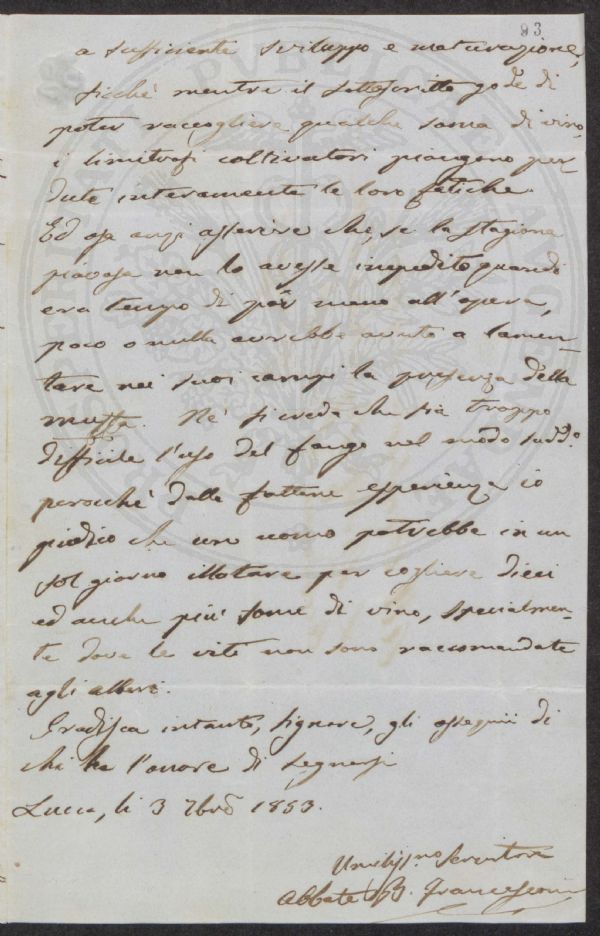 93
a sufficiente sviluppo e maturazione,
sicchè mentre il sottoscritto gode di
poter raccogliere qualche soma di vino,
i limitrofi coltivatori piangono per
dute interamente le loro fatiche.
Ed osa anzi asserire che, se la stagione
piovosa non lo avesse impedito quando
era tempo di por mano all'opera,
poco o nulla avrebbe avuto a lamen-
tare nei suoi campi la presenza della
muffa. Nè si creda che sia troppo
difficile l'uso del fango nel modo sudd.o
perocchè dalla fattane esperienza io
giudico che un uomo potrebbe in un
sol giorno illotare per cogliere dieci
ed anche più some di vino, specialmen-
te dove le viti non sono raccomandate
agli alberi.
Gradisca intanto, Signore, gli ossequii di
chi ha l'onore di segnarsi
Lucca, li 3 1853.
Umiliss.mo Servitore
Abbate Francesconi